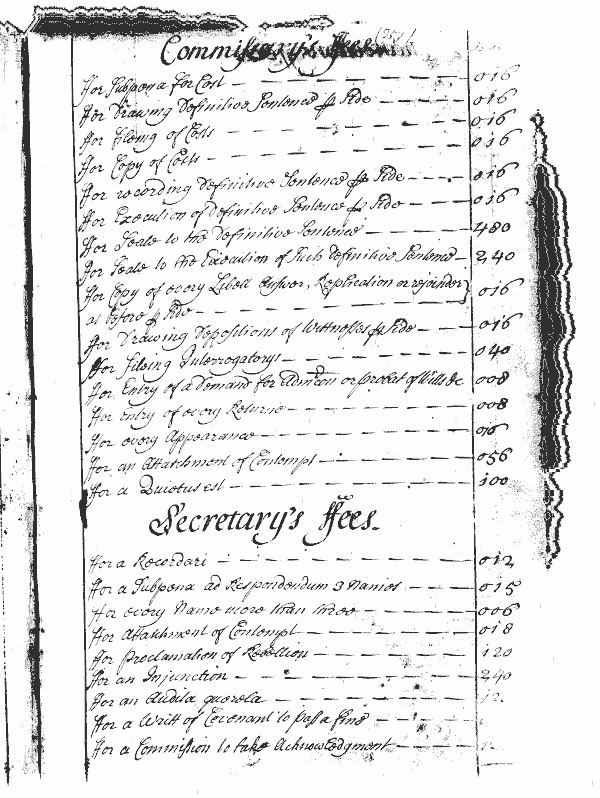 Commissary's ffees
ffor Subpena for Cost — 016
ffor Drawing Definitive Sentence ⅌ Side — 016
ffor fileing of Costs — 016
ffor Copy of Costs — 016
ffor recording Definitive Sentence ⅌ Side — 016
ffor Execution of Definitive Sentence ⅌ Side — 016
ffor Seale to the Definitive Sentence — 480
ffor Seale to the Execution of Such Definitive Sentence — 240
ffor Copy of every Libell Answer, Replication or rejoinder}
as before ⅌ Side — 016
ffor Drawing Depositions of Wittnesses ⅌ Side — 016
ffor fileing Interrogatorys — 040
ffor Entry of a Demand for Admicon or probat of Wills &c 008
ffor entry of every Returne — 008
ffor every Appearance — 016
ffor an Attatchment of Contempt — 056
ffor a Quietus est — 100
Secretary's ffees
ffor a Recordari — 012
ffor a Subpena ad Respondendum 3 Names — 015
ffor every Name more than three — 006
ffor Attatchment of Contempt — 018
ffor Proclamation of Rebellion — 120
ffor an Injunction — 240
ffor an Audita querela — 12
ffor a Writt of Covenant to pass a fine —
ffor a Commission to take Acknowledgment —